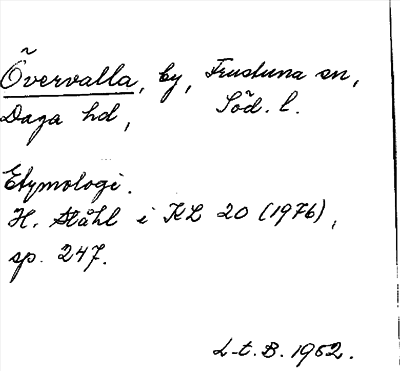 Övervalla, by, Frustuna sn,
Daga hd, Söd. l.
Etymologi.
H. Ståhl i KL 20 (1976),
sp. 247.
L-t. B. 1962.